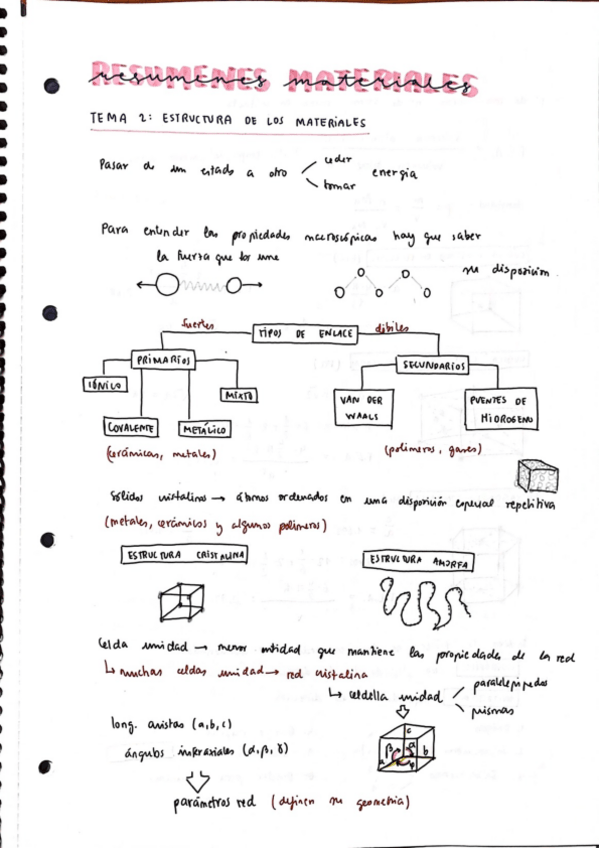 RESUMENES MATERIALES
resumenes materiales
TEMA 2: ESTRUCTURA DE LOS MATERIALES
Pasar de un estado a otro
ceder
tomar
energia
Para entender las propiedades macroscópicas hay que saber
la fuerza que los une
su disposición.
fuertes
TIPOS DE ENLACE
débiles
PRIMARIOS
SECUNDARIOS
IÓNICO
MIXTO
COVALENTE
METÁLICO
VAN DER
WAALS
PUENTES DE
HIDROGENO
(cerámicas, metales)
(polímeros, gases)
Sólidos cristalinos → átomos ordenados en una disposición espacial repetitiva
(metales, cerámicos y algunos polímeros)
ESTRUCTURA CRISTALINA
ESTRUCTURA AMORFA
Celda unidad → menor entidad que mantiene las propiedades de la red
↳ muchas celdas unidad → red cristalina
↳ celdilla unidad
paralelepípedos
prismas
long. aristas (a,b,c)
ángulos interaxiales (α,β,γ)
c
β
α
b
a
parámetros red (definen su geometría)